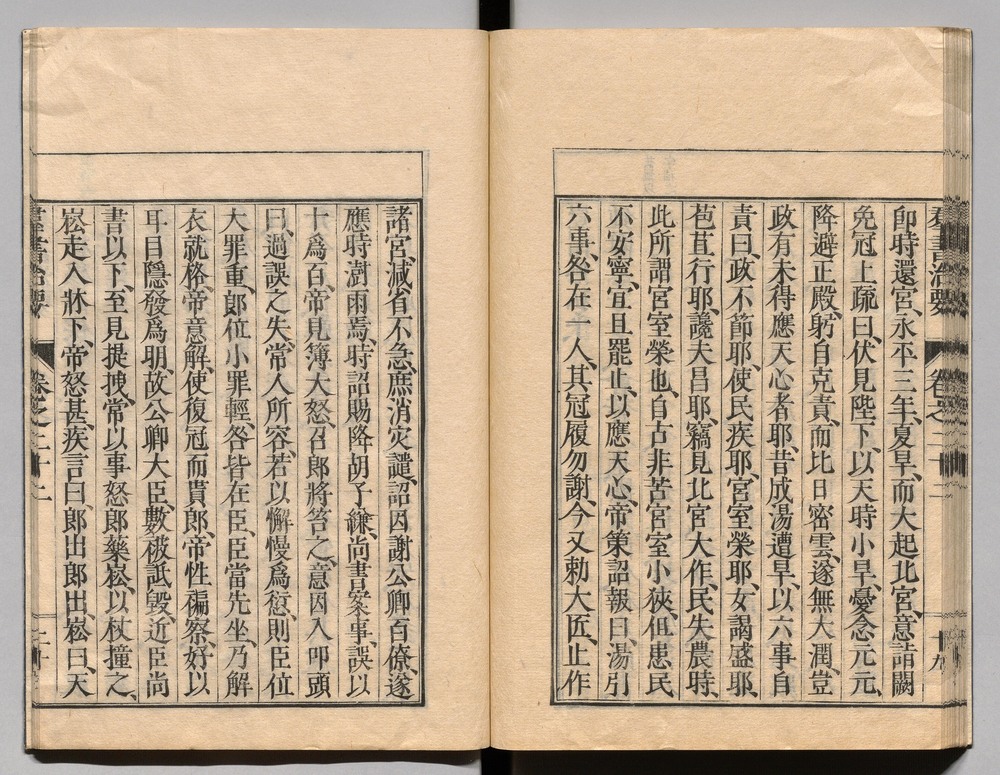 即時還宮、永平三年、夏旱、而大起北宮、意詣闕
免冠上疏曰、伏見陛下、以天時小旱、憂念元元、
降避正殿、躬自克責、而比日密雲、遂無大潤、豈
政有未得應天心者耶、昔成湯遭旱、以六事自
責曰、政不節耶、使民疾耶、宮室榮耶、女謁盛耶、
苞苴行耶、讒夫昌耶、竊見北宮大作、民失農時、
此所謂宮室榮也、自古非苦宮室小狹、但患民
不安寧、宜且罷止、以應天心、帝策詔報曰、湯引
六事、咎在一人、其冠履勿謝、今又勅大匠、止作
諸宮、減省不急、庶消灾譴、詔因謝公卿百僚、遂
應時澍雨焉、時詔賜降胡子縑、尚書案事、誤以
十爲百、帝見簿大怒、召郎將笞之、意因入叩頭
曰、過誤之失、常人所容、若以懈慢爲愆、則臣位
大罪重、郎位小罪輕、咎皆在臣、臣當先坐、乃解
衣就格、帝意解、使復冠而貰郎、帝性褊察、好以
耳目隱發爲明、故公卿大臣、數被詆毀、近臣尚
書以下、至見提拽、常以事怒郎藥崧、以杖撞之、
崧走入牀下、帝怒甚、疾言曰、郎出郎出、崧曰、天
羣書治要 卷之二十二